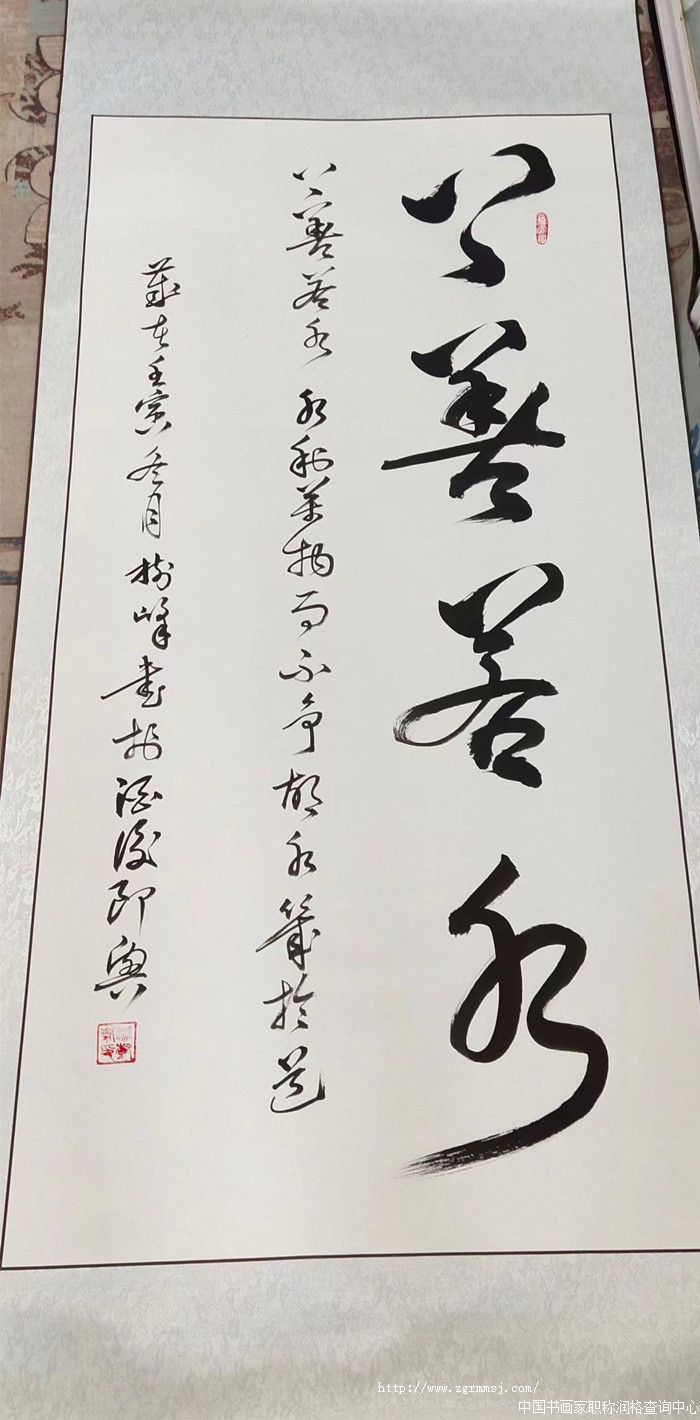 上善若水
上善若水 水利萬物而不争故水幾於道
歲在壬寅冬月樹峰書於酒後即興
http://www.zgrmmsj.com/
中国书画家职称润格查询中心